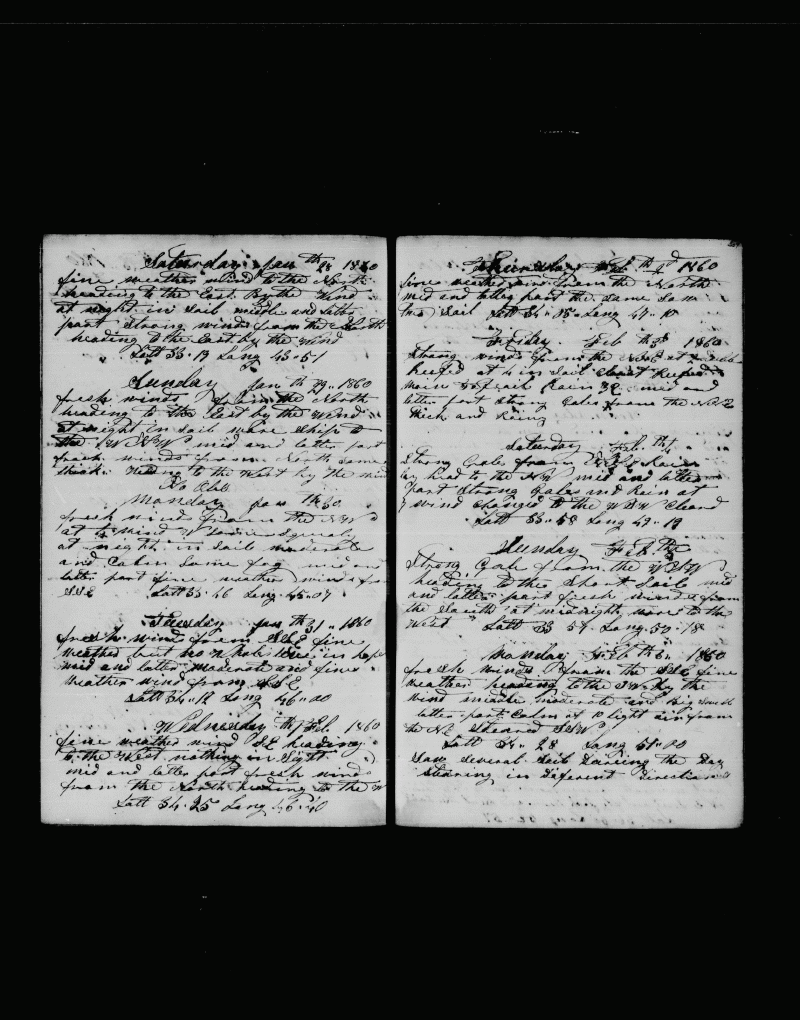 Saturday Jan th 28 1860
fine weather wind to the North
heading to the East By the wind
at night in sail middle and latter
part Strong winds from the North
heading to the East by the wind
Latt 35-19 Long 43-51
Sunday Jan th 29 1860
fresh winds from the North
heading to the East by the wind
at night in sail wore Ship to
the W N W mid and latter part
fresh winds from North some
thick heading to the West by the wind
No Obs
Monday Jan th 30
fresh winds from the N W
at 4 wind W Squals
at night in Sail moderate
and Calm Some fog mid and
latter part fine weather wind from
S S E Latt 35-46 Long 45-07
Tuesday Jan th 31 1860
fresh wind from S S E fine
weather but no whale
mid and latter moderate and fine
weather wind from S S E
Latt 34-12 Long 46-00
Wednesday th 1 Feb 1860
fine weather wind S E heading
to the West nothing in Sight
mid and latter part fresh winds
from the North heading to the W
Latt 34-25 Long 46-40
Thursday Feb th 2 1860
fine weather wind from the North
mid and latter part the Same Saw
two Sail Latt 34-35 Long 47-10
Friday Feb th 3 1860
Strong winds from the at
reefed at 4 in Sail Close reefed
main Rain mid and
latter part Strong Gales from the
thick and
Saturday Feb th 4
Strong Gales from Rain
head to the N W mid and latter
part Strong Gales and Rain at
7 wind changed to the W S W Cleard
Latt 35-58 Long 49-19
Sunday Feb th
Strong Gale from the W S W
heading to the Short Sail mid
and latter part fresh winds from
the South at midnight wore to the
West Latt 35 57 Long 50-18
Monday Feb th 6 1860
fresh winds from the S S E fine
weather heading to the S W by the
wind middle moderate and Big
latter part Calm at 10 light air from
the N E Steared S S W
Latt 34-28 Long 51-00
Saw Several Sail During the Day
Stearing in Diferent Directions